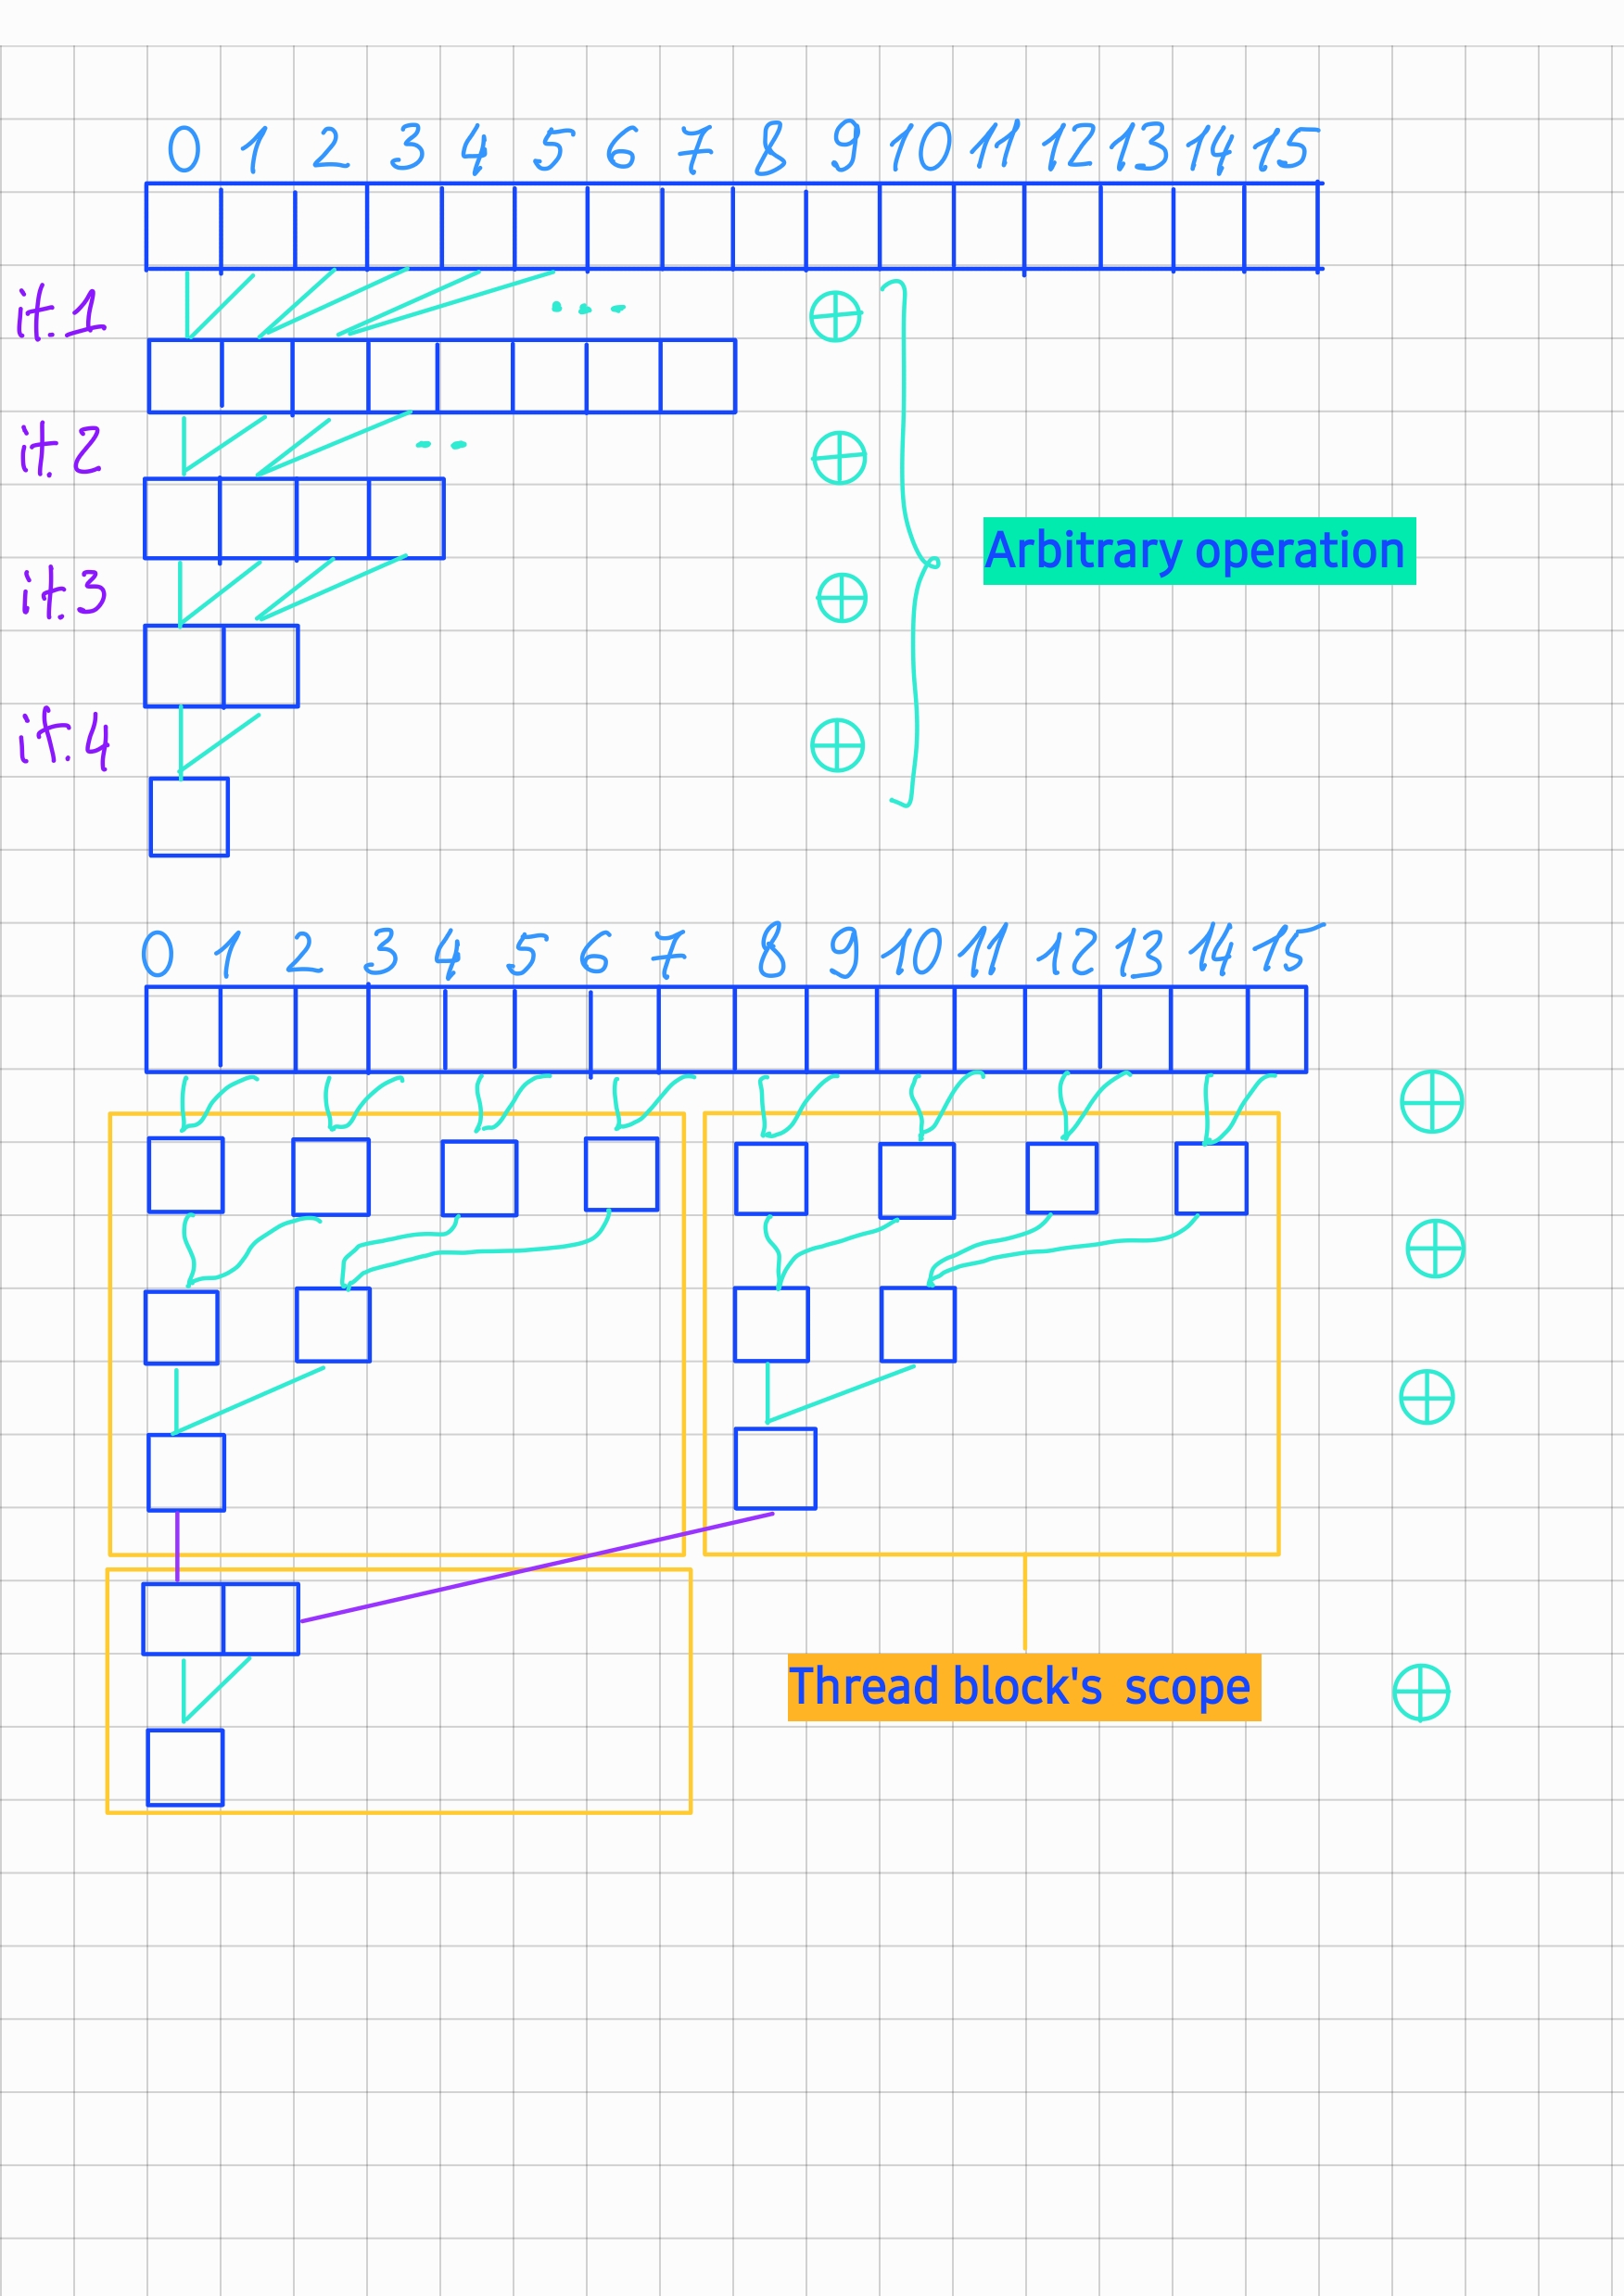 0 1 2 3 4 5 6 7 8 9 10 11 12 13 14 15
it.1
it.2
Arbitrary operation
it.3
it.4
0 1 2 3 4 5 6 7 8 9 10 11 12 13 14 15
Thread block's scope